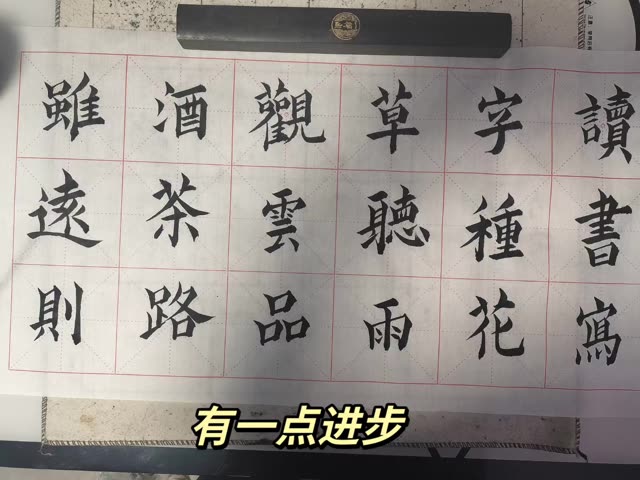 讀書寫
字種花
草聽雨
觀雲品
酒茶路
雖遠則
有一点进步